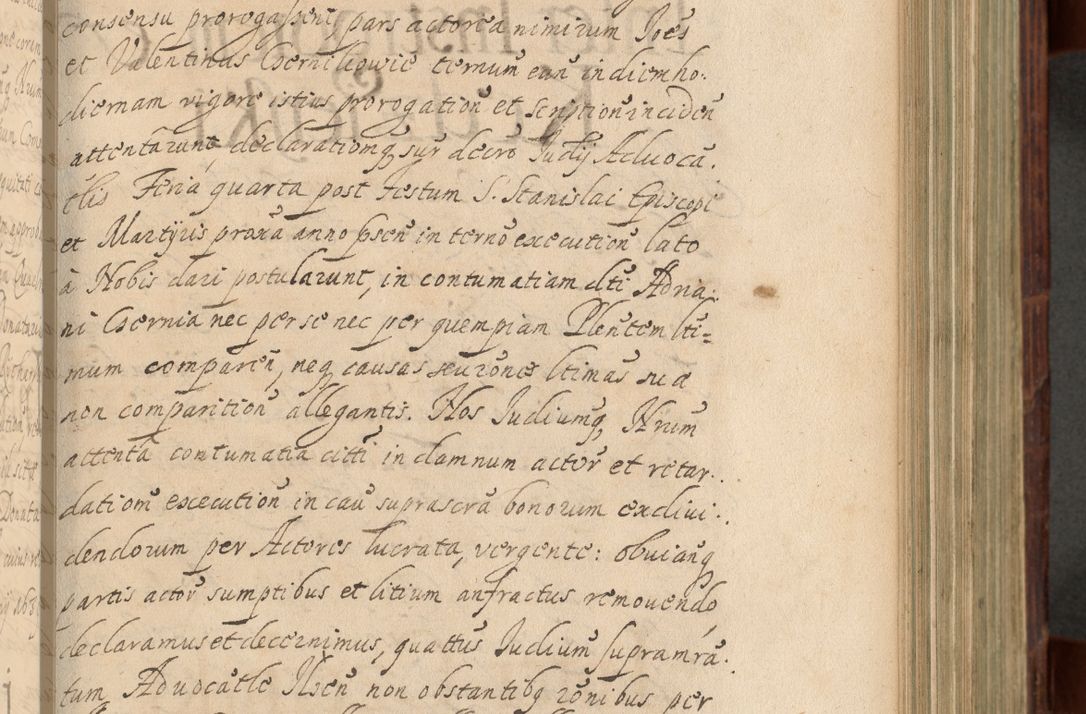 consensu prorogassent pars actorea nimirum Joēs
et Valentinus Czerniliowic ternum eun̄ in diem ho-
diernam vigore istius prorogationē et scriptionē in eiden̄
attentārunt, declarationēq sup̄ decrō Judij Advocā-
tlis Feria quarta post Festum S. Stanislai Episcopi
et Martyris proxā anno p̄sen̄ in ternō executionē lato
à Nobis dari postularunt, in contumatiam dti Adria-
ni Czernia nec per se nec per quempiam Plenten lti=
mum comparen̄, neq causas seu rōnes ltimas suæ
non comparitionē allegantis. Nos Judiumq Nrum
attenta contumatia citti in damnum actor̄ et retar-
dationē executionē in cau suprascrā bonorum exdivi-
dendorum per Actores lucrata, vergente: obvianq
partis actor̄ sumptibus et litium anfractus removendo
declaramus et decernimus, quattus Judium supramrā-
tum Advocatle Ilsen̄ non obstantibq rōnibus per